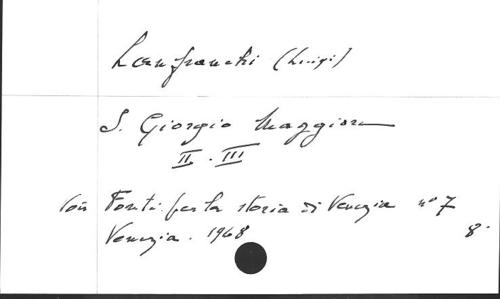 Lanfranchi (Luigi)
S. Giorgio Maggiore
II. III
Voir Fonti per la storia di Venezia n° 7
Venezia. 1968 8°